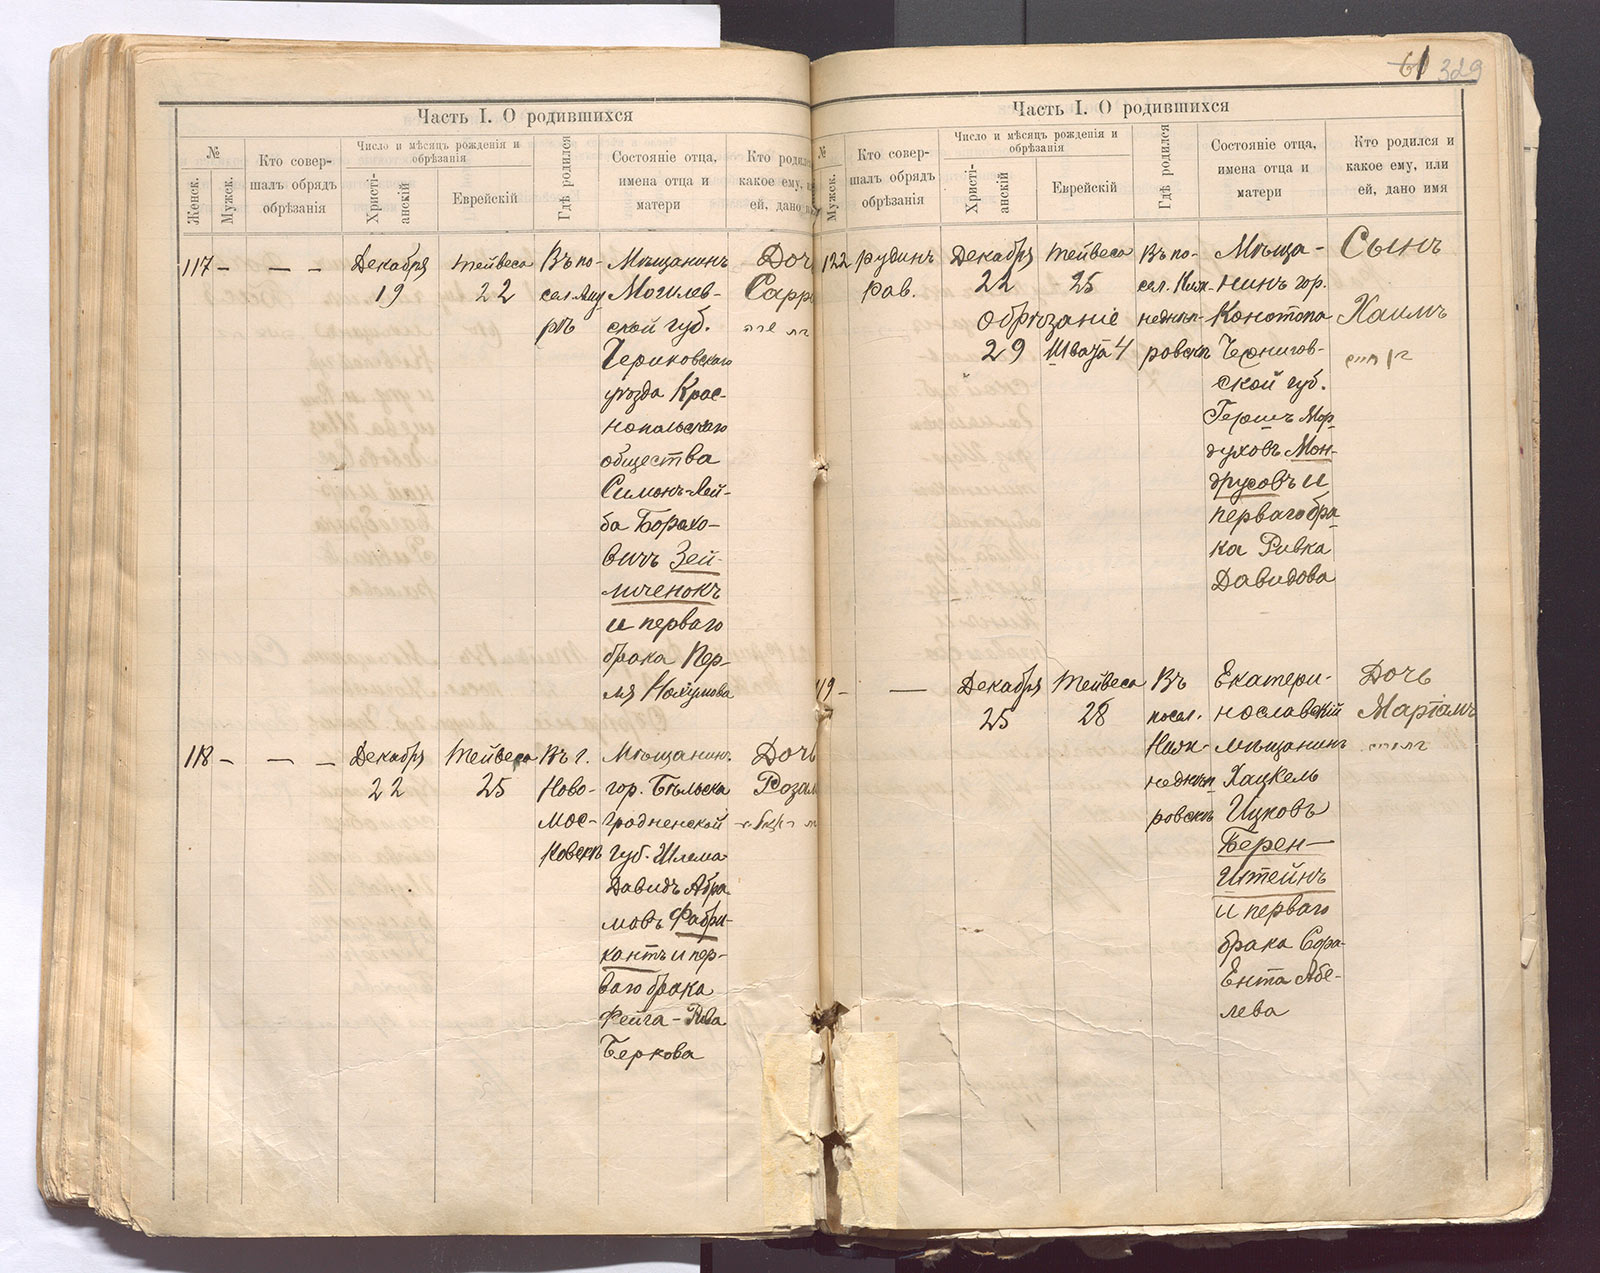 61 329
Часть I. О родившихся
№
Женск.
Мужск.
Кто совер-
шалъ обрядъ
обрѣзанія
Число и мѣсяцъ рожденія и
обрѣзанія
Христі-
анскій
Еврейскій
Гдѣ родился
Состояніе отца,
имена отца и
матери
Кто родился
какое ему, и
ей, дано
117 – — – Декабря
19
Тейвеса
22
Въ по-
сел. Ам
ръ
Мѣщанинъ
Могилев-
ской губ.
Чериковскаго
уѣзда Крас-
нопольскаго
общества
Симонъ-Лей-
ба Борухо-
вичъ Зей-
личенокъ
и перваго
брака Пер-
ля Нохумова
Дочь
Сарра
118 – — – Декабря
22
Тейвеса
25
Въ г.
Ново-
мос-
ковскъ
Мѣщанинъ
гор. Бѣльска
Гродненской
губ. Шлема
Давидъ Абра
мовъ Фабри-
кантъ и пер-
ваго брака
Фейга-Рива
Беркова
Дочь
Розал
Часть I. О родившихся
№
Мужск.
Кто совер-
шалъ обрядъ
обрѣзанія
Число и мѣсяцъ рожденія и
обрѣзанія
Христі-
анскій
Еврейскій
Гдѣ родился
Состояніе отца,
имена отца и
матери
Кто родился и
какое ему, или
ей, дано имя
122 Рудинъ
рав.
Декабря
22
Тейвеса
25
Обрѣзаніе
29 Швата 4
Въ по-
сел. Ниж-
неднѣп-
ровскъ
Мѣща-
нинъ гор.
Конотопа
Чернигов-
ской губ.
Гершъ Мор-
духовъ Мон-
друсовъ и
перваго бра
ка Ривка
Давидова
Сынъ
Хаимъ
חיים
119 – — Декабря
25
Тейвеса
28
Въ
посел.
Ниж-
неднѣп
ровскъ
Екатери-
нославскій
мѣщанинъ
Хацкель
Ицковъ
Берен-
штейнъ
и перваго
брака Сора-
Ента Абе-
лева
Дочь
Маріамъ